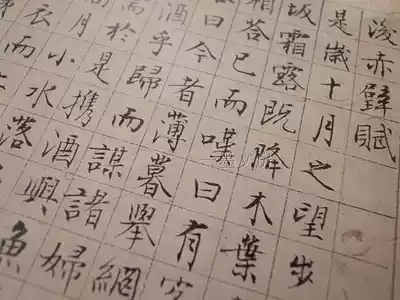 後赤壁賦
是歲十月之望步
坂霜露既降木葉
相荅已而嘆曰有
曰今者薄暮舉網
酒乎歸而謀諸婦
於是携酒與魚
月小水落
衣而